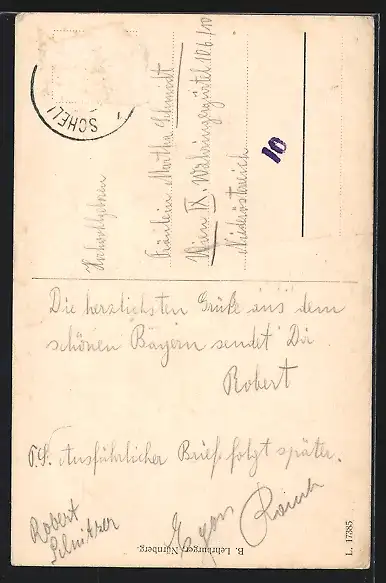 SCHEL
Hochwohlgeboren
Fräulein Martha Schmidt
Wien IX. Währingergürtel 106/10
Niederösterreich
10
Die herzlichsten Grüße aus dem
schönen Bayern sendet Dir
Robert
P.S. Ausführlicher Brief folgt später.
Robert
Egon
B. Lehrburger, Nürnberg.
L. 17385